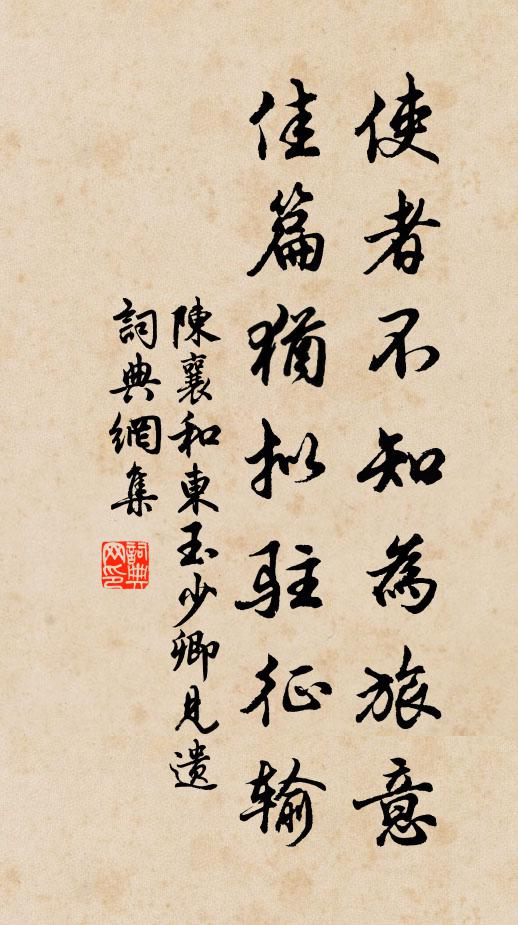 使者不知為旅意
佳篇猶拟駐征输
陳襄和東玉少卿見遺
詞典網集
詞典網印